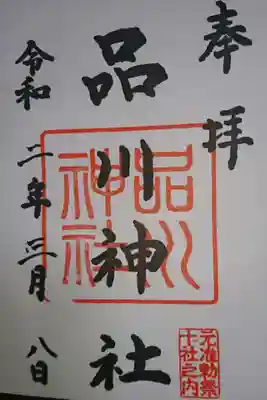 奉拝
品川神社
令和二年三月八日
品川神社
元准勅祭十社之内